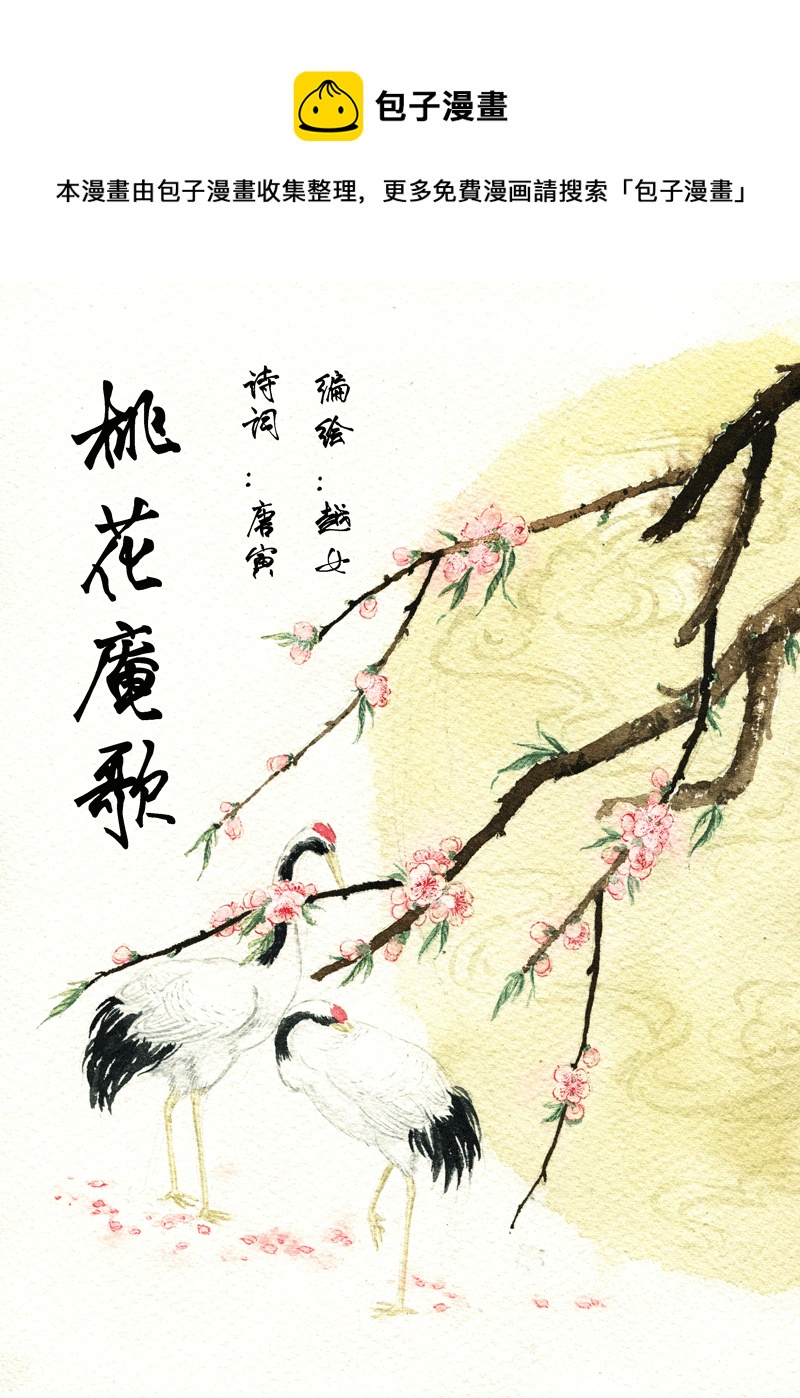 包子漫畫
本漫畫由包子漫畫收集整理，更多免費漫画請搜索「包子漫畫」
编绘：越女
诗词：唐寅
桃花庵歌